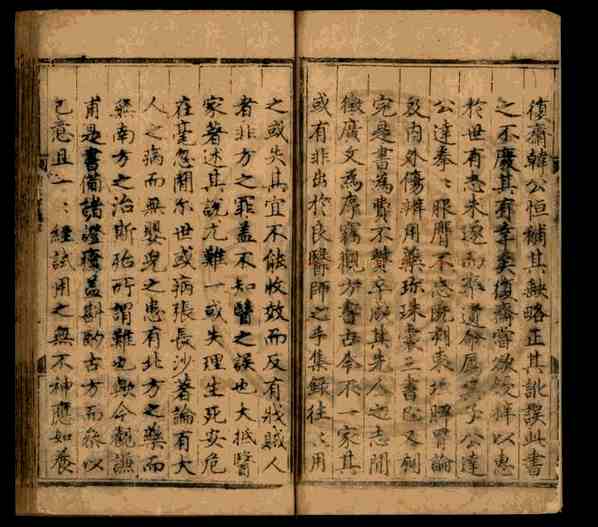 復齋韓公恒補其缺略正其訛誤此書
之不廢其有幸矣復齋嘗欲鋟梓以惠
於世有志未遂而卒遺命属其子公達
公達奉〻服膺不忘既刻東垣脾胃論
及内外傷辨用藥珍珠囊三書院又刻
完是書爲費不貲卒成其先人之志間
徵廣文爲序竊觀方書古今不一家其
或有非出於良醫師之手集録往〻用
之或失其宜不能收效而反有戕賊人
者非方之罪蓋不知醫之誤也大抵醫
家著述其説尤難一或失理生死安危
在毫忽間尔世或病張長沙著論有大
人之病而無嬰兒之患有北方之藥而
無南方之治斯殆所謂難也歟今觀譙
甫是書備諸證療蓋斟酌古方而參以
己意且一〻經試用之無不神應如養